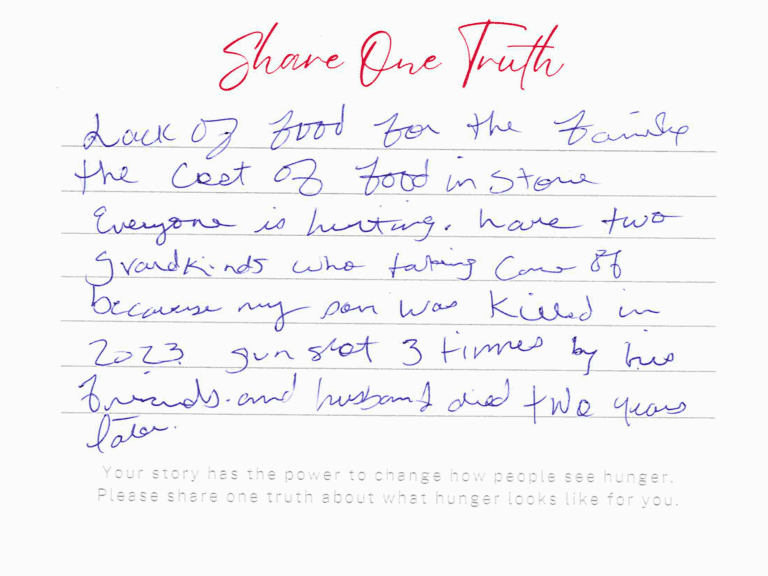 Share One Truth
Lack of food for the family
the cost of food in store
Everyone is hurting. have two
grandkinds who taking care of
because my son was killed in
2023 gun shot 3 times by his
friends. and husband died two years
later.
Your story has the power to change how people see hunger.
Please share one truth about what hunger looks like for you.